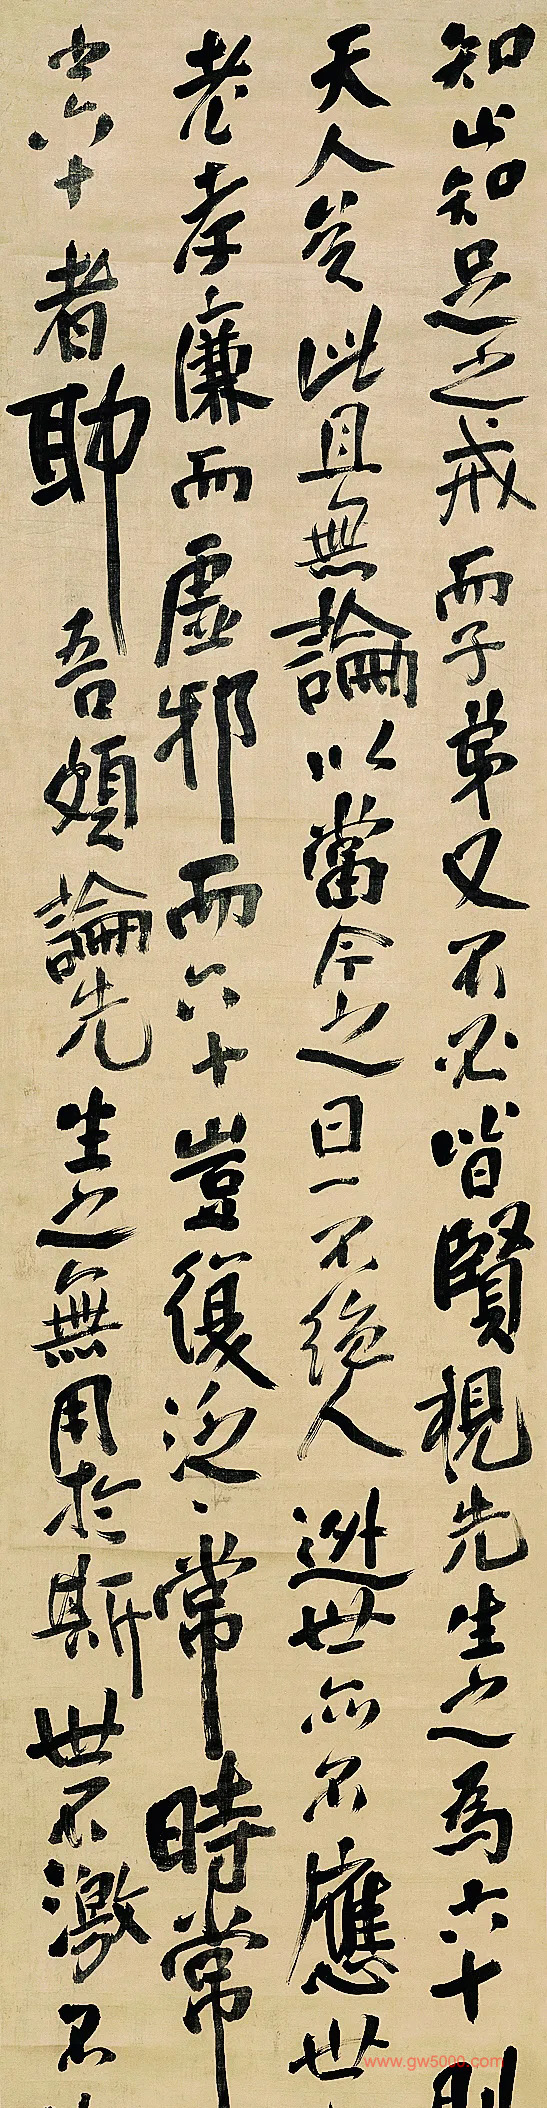 知止知足之戒而子弟又不必皆賢視先生之為六十則
天人矣此且無論以當今之日一不絕人逃世亦不應世
老孝廉而虛邪而六十豈復泛〻常時常
六十者耶吾頗論先生之無用於斯世不激不
www.gw5000.com